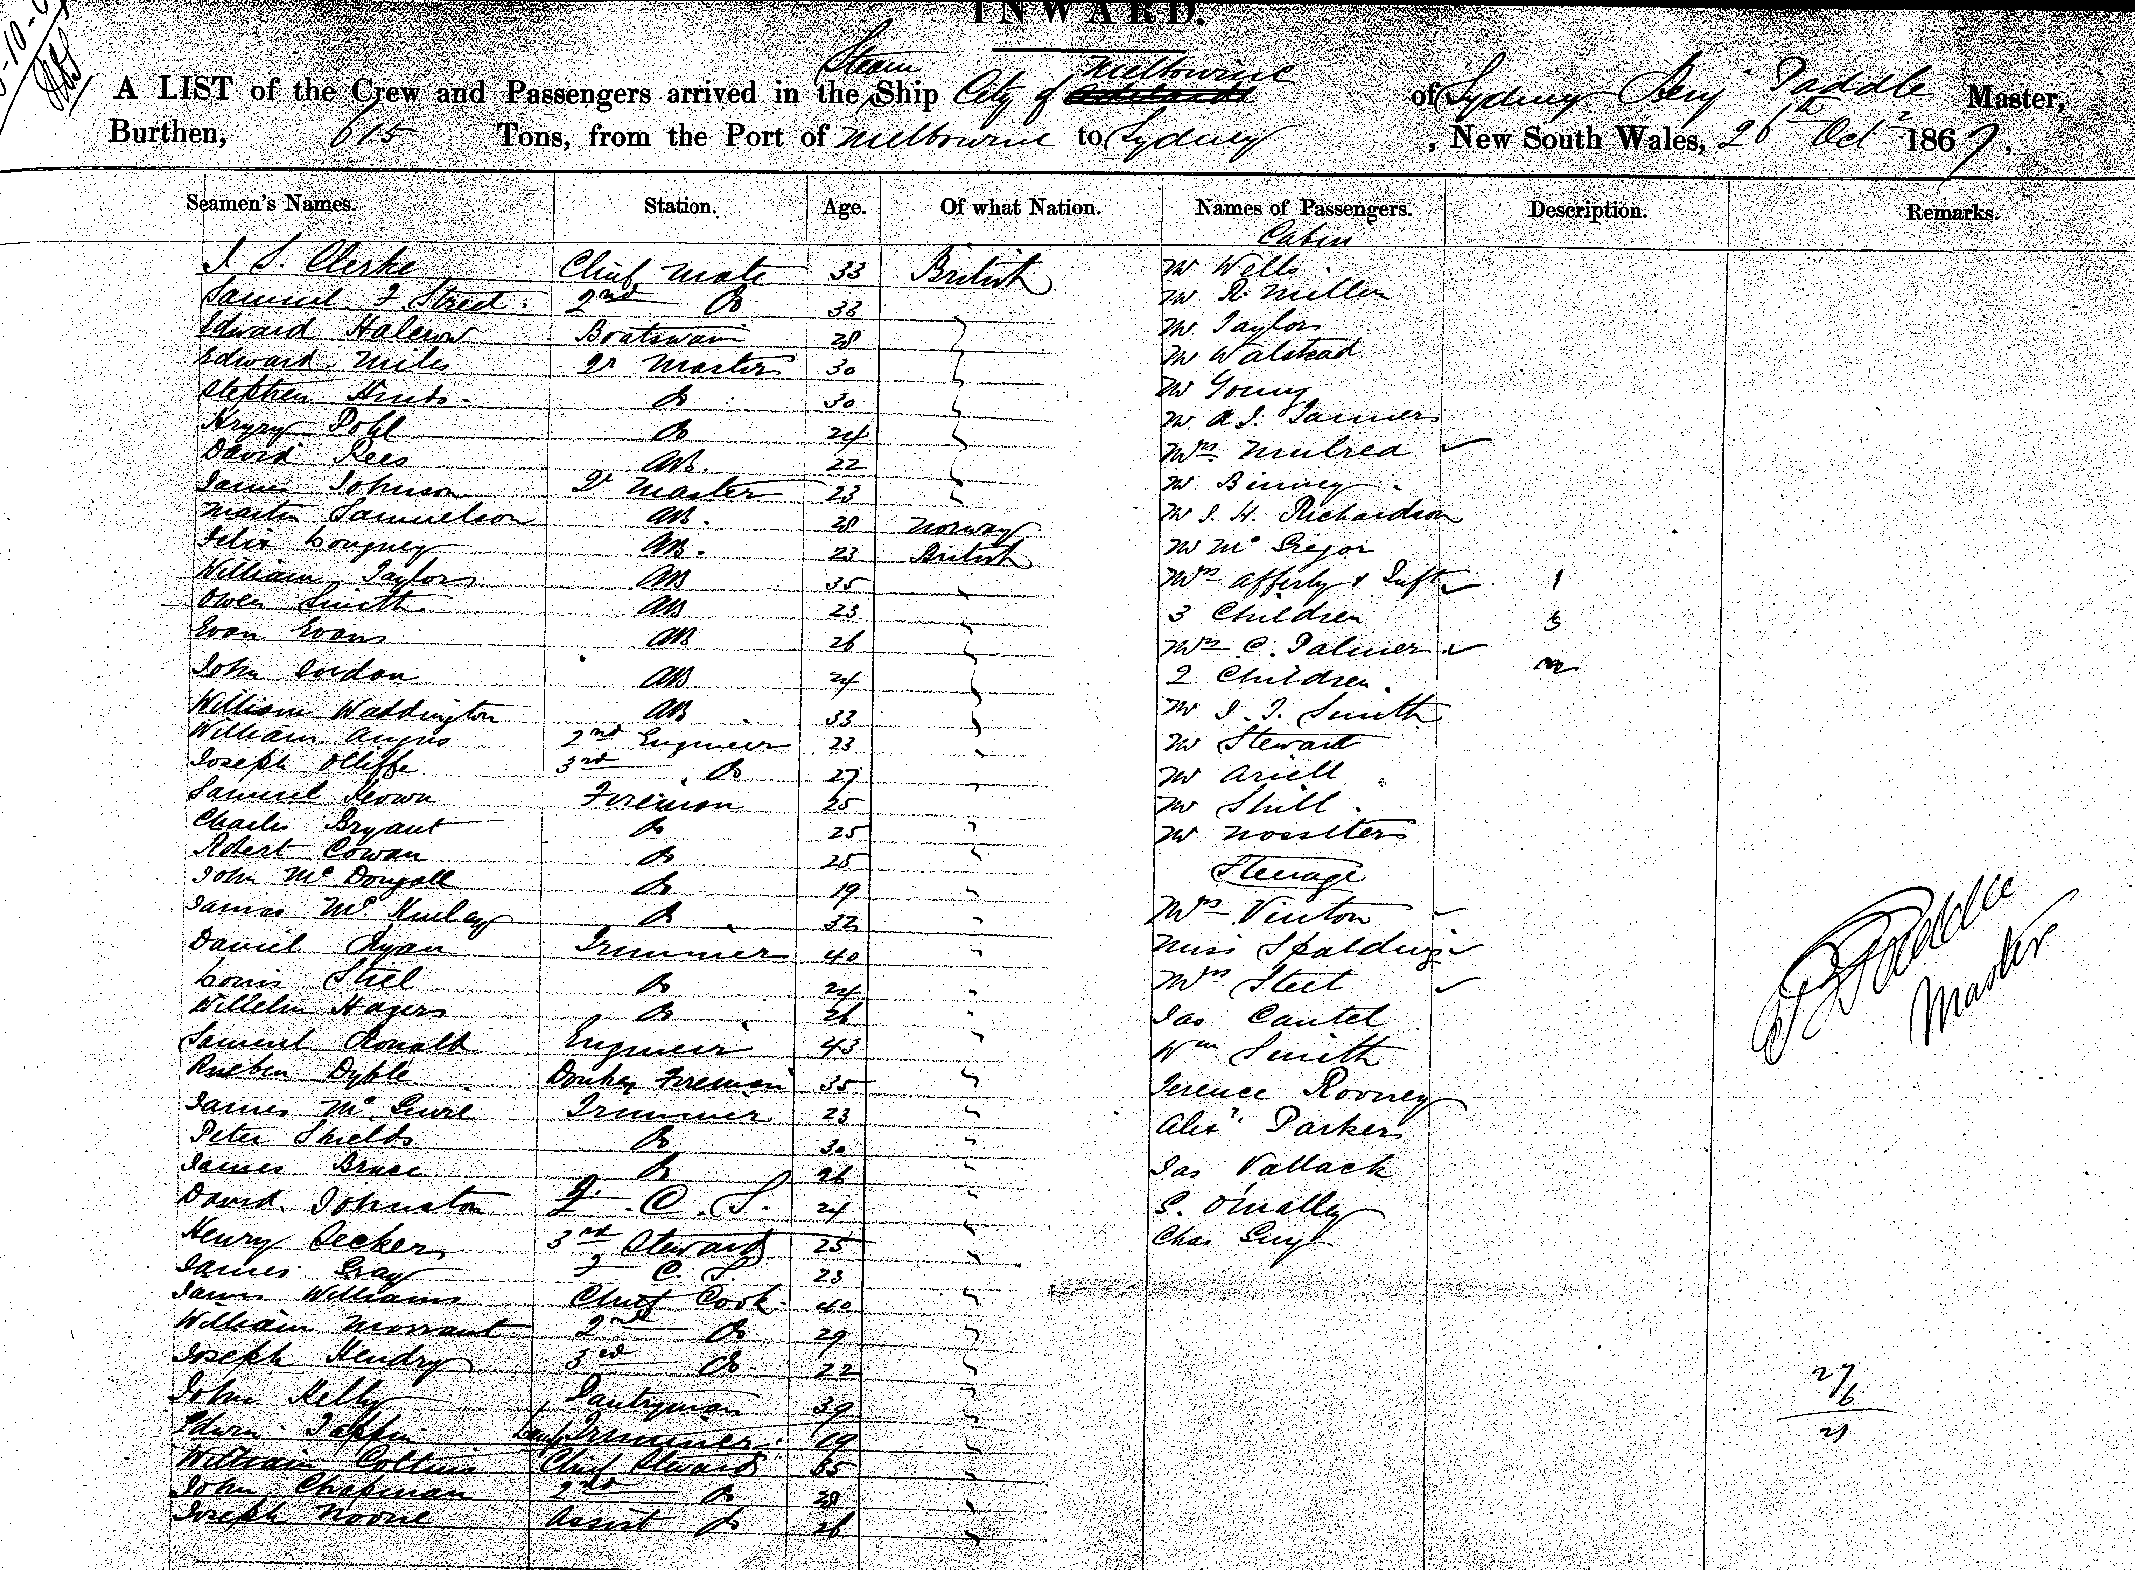 INWARD.
A LIST of the Crew and Passengers arrived in the Steam Ship City of Melbourne of Sydney Benj Paddle Master,
Burthen, 615 Tons, from the Port of Melbourne to Sydney , New South Wales, 26th Oct 1867.
Seamen's Names. Station. Age. Of what Nation. Names of Passengers. Description. Remarks.
Cabin
J. S. Clerke Chief Mate 33 British Mr Wells
Samuel F Street 2nd Do 33 Mr R. Miller
Edward Boatswain 28 " Mr Taylor
Edward Miles Qr Master 30 " Mr Walstead
Stephen Do 30 " Mr Young
Pohl Do 24 " Mr A. J.
David Rees AB. 22 " Mrs
James Johnson Qr Master 23 " Mr Binney
Martin Samuelson AB. 28 Norway Mr J. H. Richardson
Felix AB. 23 British Mr McGregor
William Taylor AB 35 " Mrs & 1
Owen Smith AB 23 " 3 Children 3
Evan Evans AB 26 " Mrs C. Palmer
John Gordon AB 24 " 2 Children 2
William Waddington AB 33 " Mr J. J. Smith
William Angus 2nd Engineer 23 " Mr Stewart
Joseph Olliffe 3rd Do 27 " Mr Ariell
Samuel Fireman 25 Mr
Charles Bryant Do 25 " Mr
Robert Cowan Do 25 " Steerage
John McDougall Do 19 "
James McKinlay Do 32 " Mrs Vinton
Daniel Ryan Trimmer 40 " Miss Spalding
Louis Stiel Do 24 " Mrs Steet
Hagers Do 26 " Jas Cantel
Samuel Ronald Engineer 43 " Wm Smith
Rueben Dyble Donkey Fireman 35 " Terence Rooney
James McGuire Trimmer 23 " Alexr Parker
Peter Shields Do 30 " Jas Vallack
James Bruce Do 26 " S. OMalley
David Johnston F. C. S. 24 " Chas Guy
Henry Deckers 3rd Steward 25 "
James Gray F C. S. 23
James Williams Chief Cook 40 "
William Morrant 2nd Do 29 "
Joseph Hendry 3rd Do 22 "
John Kelly Pantryman 39 "
Edwin Trimmer 19 "
William Collins Chief Steward 35 "
John Chapman 2nd Do 28 "
Joseph Noone Assist Do 26 "
B Paddle
Master
27
6
21